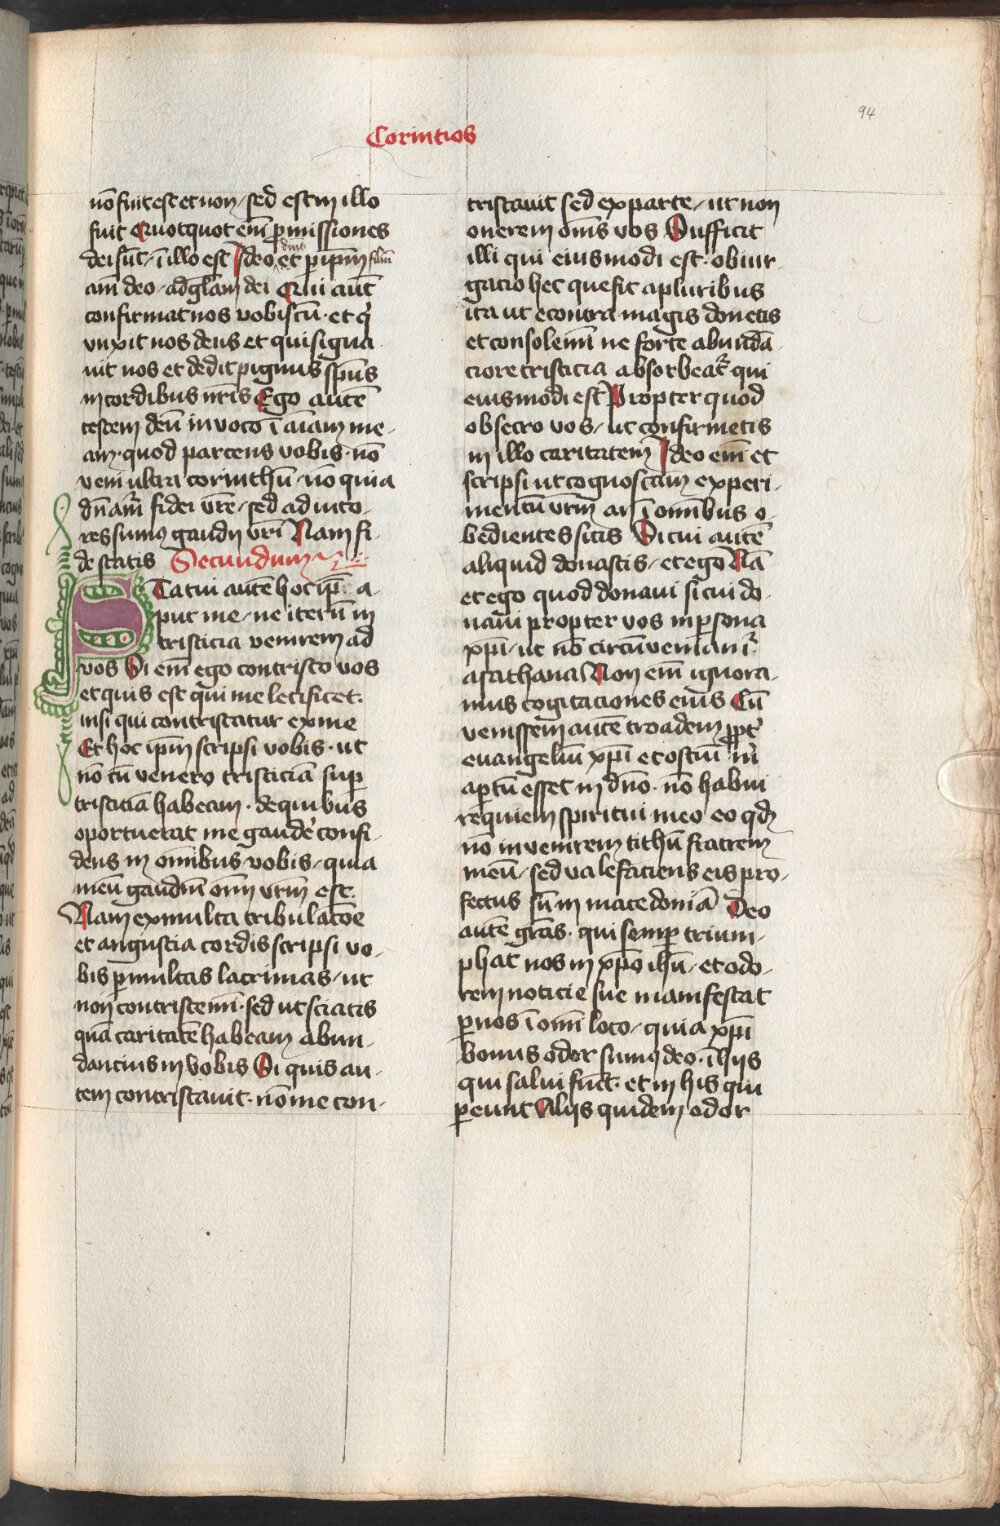 94
Corintios
nō fuit est et non / sed est in illo
fuit Quotquot em̄ ꝓmissiones
dei sūt / ī illo est Ideo et ꝑ ip̄m
am̄ deo / ad gl̄am dei Qui aūt
confirmat nos vobiscū · et q̇
vnxit nos deus et qui signa
uit nos et dedit pignus sp̄us
in cordibus nr̄is Ego autē
testem deū in voco ī aīam me-
am · quod parcens vobis · nō
veni ultra corinthū / nō quia
dn̄am̄ fidei vr̄e / sed ad iuto-
res sumꝰ gaudij vr̄i Nam fi-
de statis Secundum
STatui autē hoc ip̄ · a-
put me / ne iterū in
tristicia venirem ad
vos Si em̄ ego contristo vos
et quis est qui me letificet ·
nisi qui contristatur ex me
Et hoc ip̄m scripsi vobis · ut
nō cū venero tristiciā suꝑ
tristiciā habeam · de quibus
oportuerat me gaudē confi-
dens in omībus vobis / quia
meū gaudiū om̄ vr̄m est
Nam ex multa tribulatōe
et angustia cordis scripsi vo-
bis ꝑ multas lacrimas / ut
non contristemī · sed ut sciatis
quā caritatē habeam abun-
dancius in vobis Si quis au-
tem contristauit · nō me con-
tristauit sed ex parte / ut non
onerem om̄s vos Sufficit
illi qui eiusmodi est · obiur-
gacio hec que fit a pluribus
ita ut econtra magis donetis
et consolemī ne forte abundā
ciore tristicia absorbeat̄ qui
eiusmodi est Propter quod
obsecro vos / ut confirmetis
in illo caritatem Ideo em̄ et
scripsi ut cognoscam experi-
mentū vr̄m an ī omībus o-
bedientes sitis Si cui autē
aliquid donastis / et ego Nā
et ego quod donaui si cui do-
naui propter vos in ꝑsona
xp̄i / ut nō circūueniam̄
a sathana Non em̄ ignora-
mus cogitaciones eius Cū
venissem autē troadem ꝓpt̄
euangeliū xp̄i et ostiū m̄
aꝑtū esset in dn̄o · nō habui
requiem spiritui meo eo qd̄
nō inuenirem tithū fratrem
meū / sed valefaciens eis pro-
fectus sū in macedoniā Deo
autē gr̄as · qui semꝑ trium-
phat nos in xp̄o ih̄u / et odo-
rem noticie sue manifestat
ꝑ nos ī om̄i loco / quia xp̄i
bonus odor sumꝰ deo · ī hijs
qui salui fiūt · et in his qui
ꝑeunt Alijs quidem odor